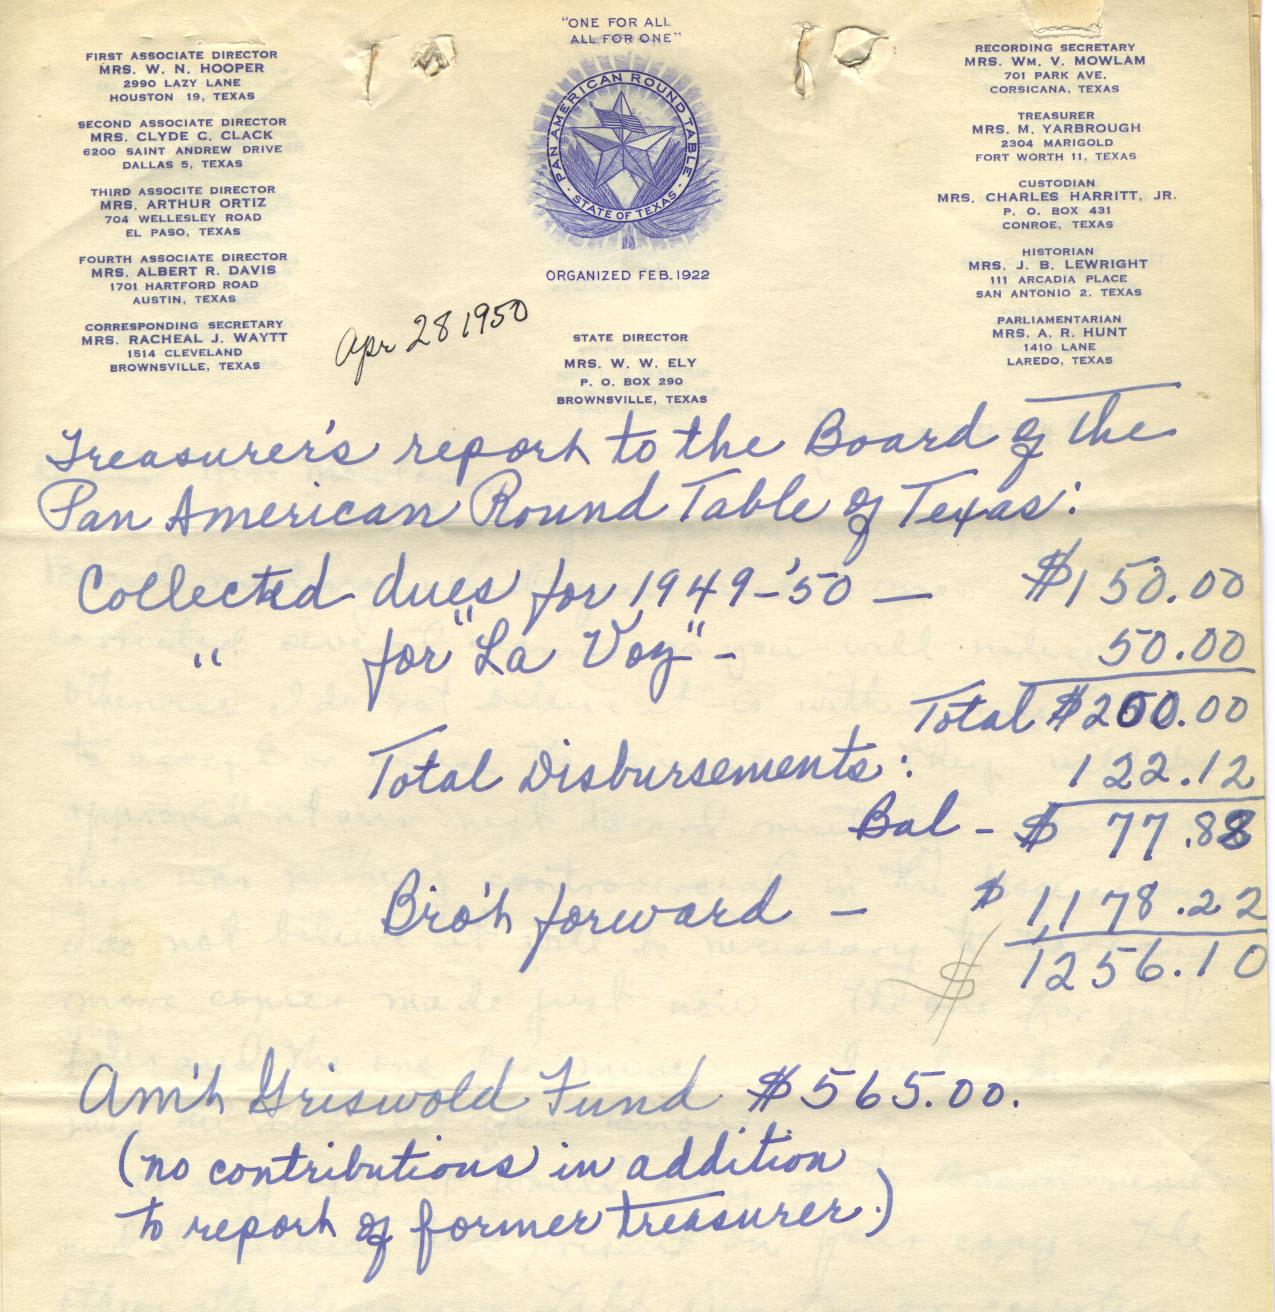 "ONE FOR ALL
ALL FOR ONE"
PAN AMERICAN ROUND TABLE
STATE OF TEXAS
ORGANIZED FEB. 1922
FIRST ASSOCIATE DIRECTOR
MRS. W. N. HOOPER
2990 LAZY LANE
HOUSTON 19, TEXAS
SECOND ASSOCIATE DIRECTOR
MRS. CLYDE C. CLACK
6200 SAINT ANDREW DRIVE
DALLAS 5, TEXAS
THIRD ASSOCITE DIRECTOR
MRS. ARTHUR ORTIZ
704 WELLESLEY ROAD
EL PASO, TEXAS
FOURTH ASSOCIATE DIRECTOR
MRS. ALBERT R. DAVIS
1701 HARTFORD ROAD
AUSTIN, TEXAS
CORRESPONDING SECRETARY
MRS. RACHEAL J. WAYTT
1514 CLEVELAND
BROWNSVILLE, TEXAS
RECORDING SECRETARY
MRS. WM. V. MOWLAM
701 PARK AVE.
CORSICANA, TEXAS
TREASURER
MRS. M. YARBROUGH
2304 MARIGOLD
FORT WORTH 11, TEXAS
CUSTODIAN
MRS. CHARLES HARRITT, JR.
P. O. BOX 431
CONROE, TEXAS
HISTORIAN
MRS. J. B. LEWRIGHT
111 ARCADIA PLACE
SAN ANTONIO 2, TEXAS
PARLIAMENTARIAN
MRS. A. R. HUNT
1410 LANE
LAREDO, TEXAS
STATE DIRECTOR
MRS. W. W. ELY
P. O. BOX 290
BROWNSVILLE, TEXAS
Apr 28 1950
Treasurer's report to the Board of the
Pan American Round Table of Texas:
Collected dues for 1949-'50 — $150.00
" for "La Voz" - 50.00
Total $200.00
Total Disbursements: 122.12
Bal - $ 77.88
Bro't forward — $1,178.22
$ 1256.10
Am't Griswold Fund $565.00.
(no contributions in addition
to report of former treasurer.)